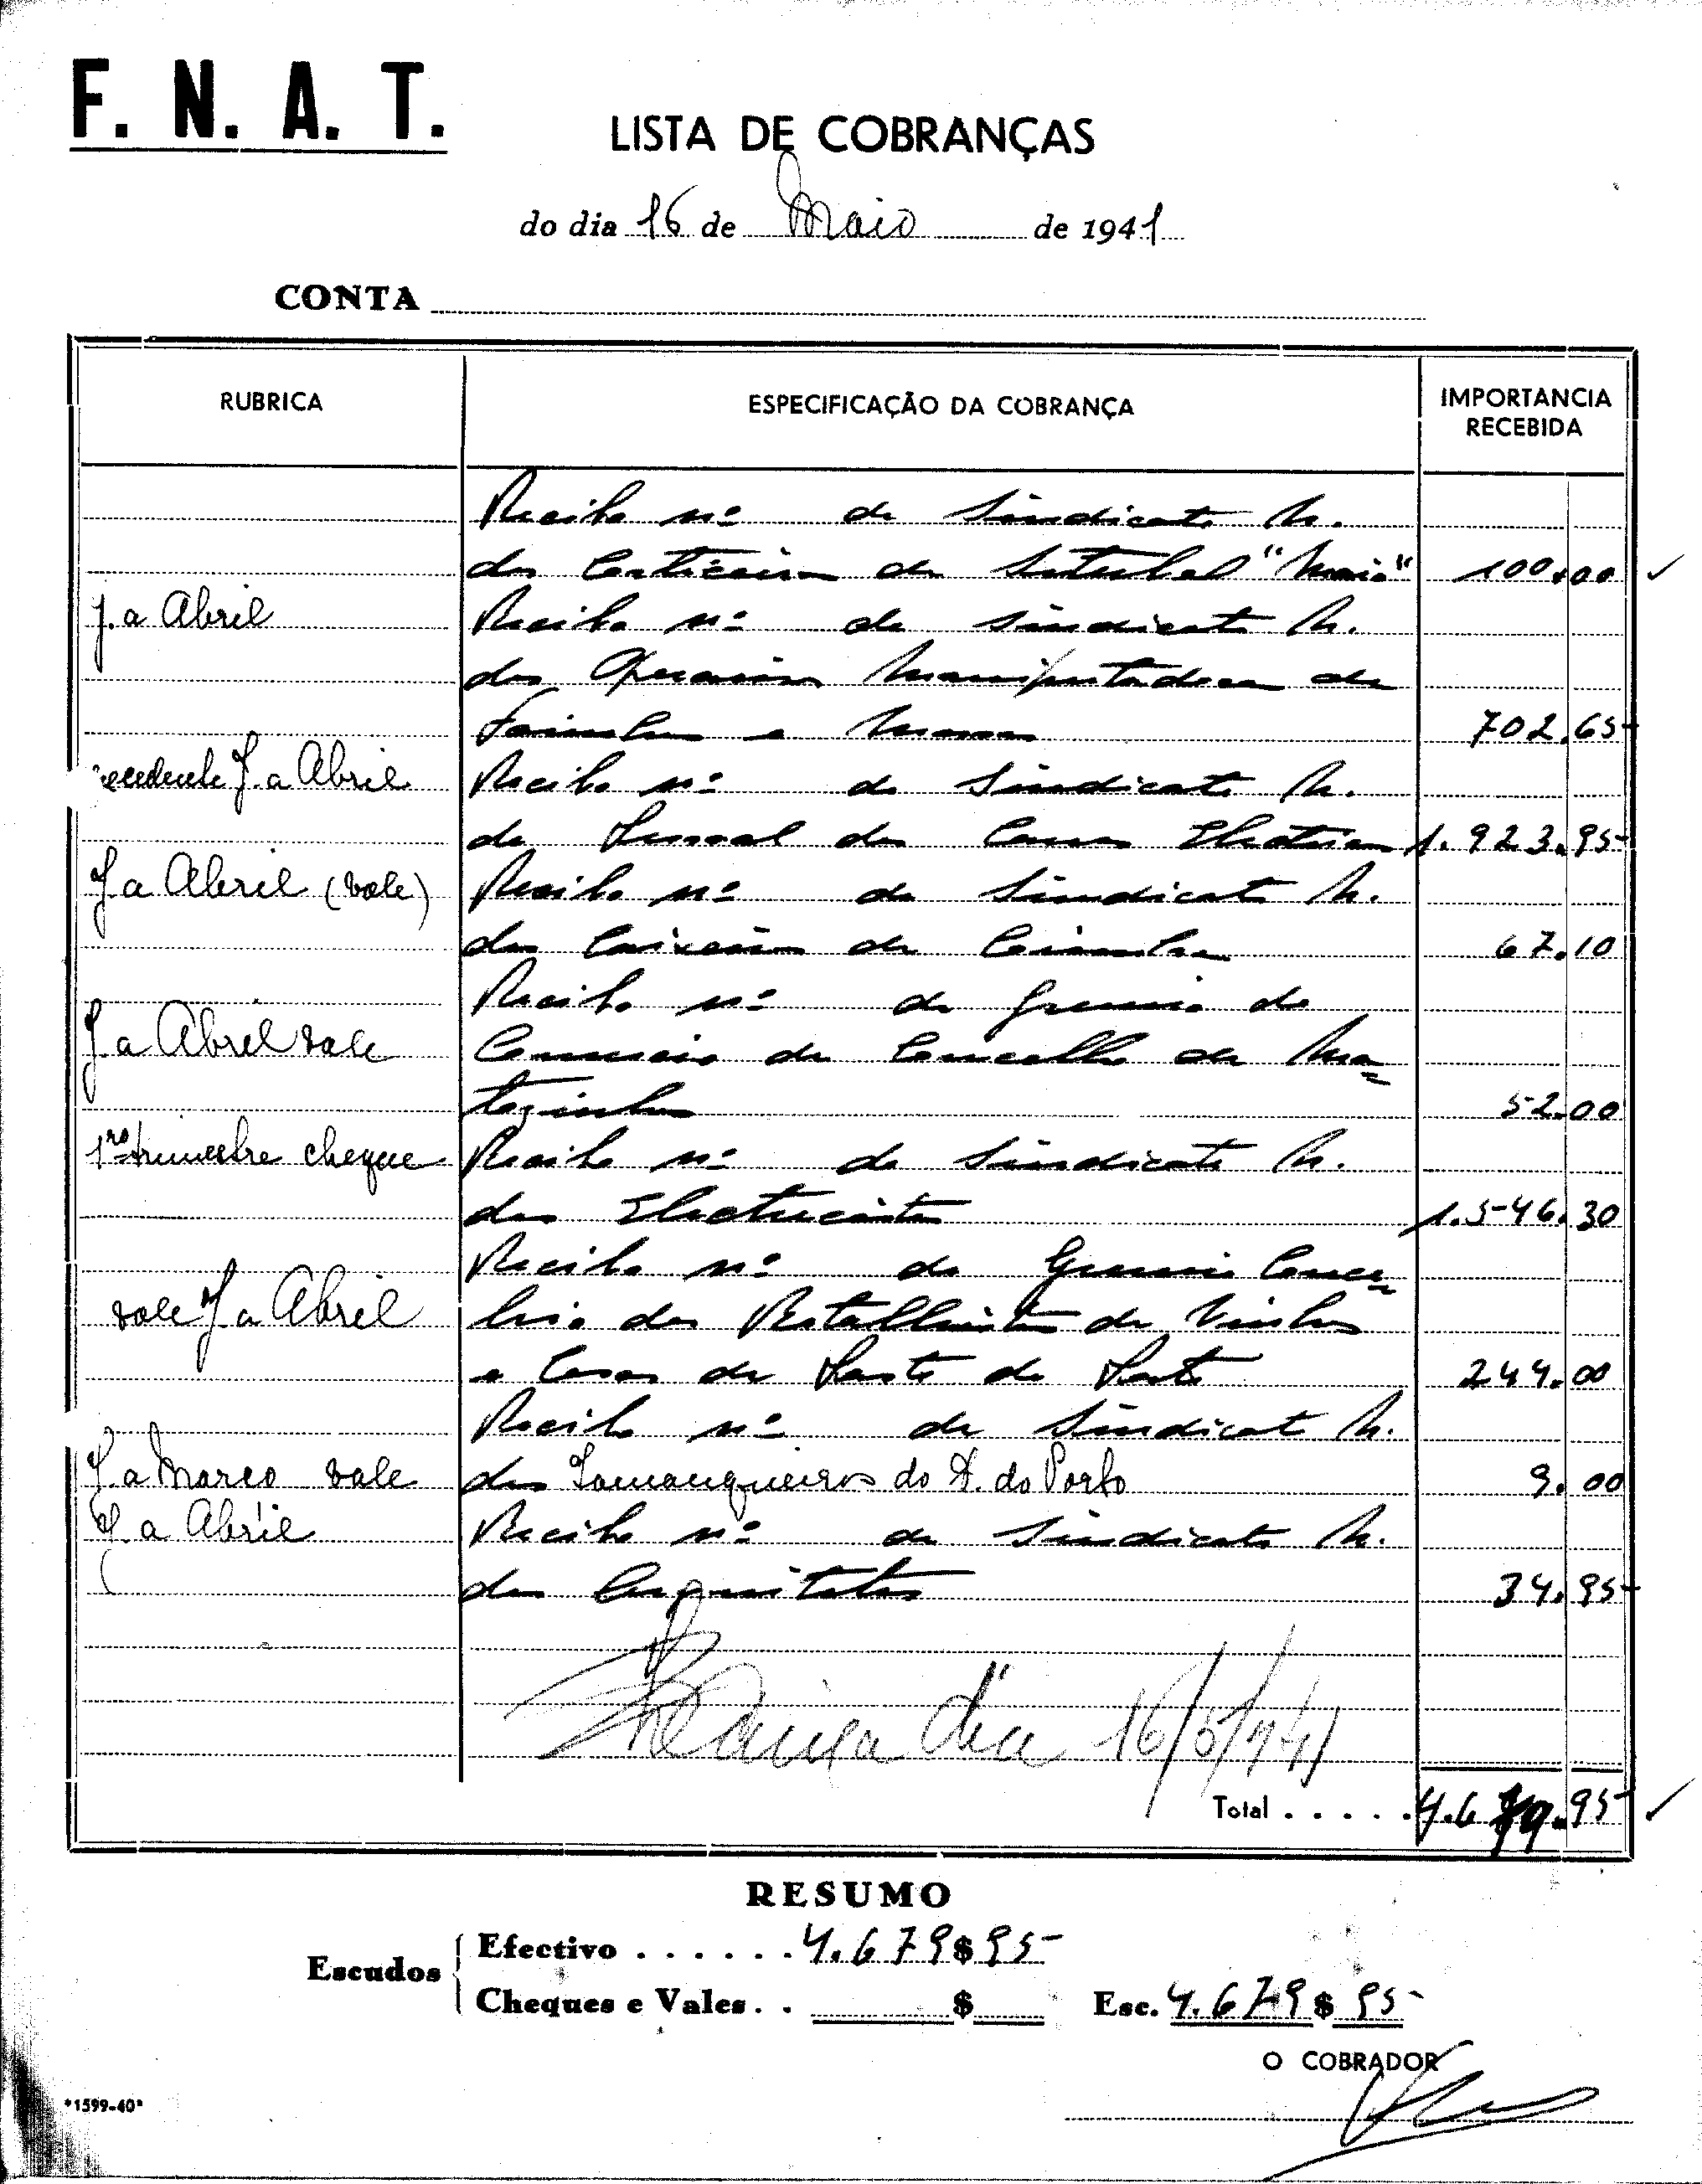 F. N. A. T.
LISTA DE COBRANÇAS
do dia 16 de Maio de 1941
CONTA
RUBRICA ESPECIFICAÇÃO DA COBRANÇA IMPORTANCIA
RECEBIDA
Recibo nº do Sindicato N.
dos Corticeiros de Setubal "Maio" 100.00
J. a Abril Recibo nº do Sindicato N.
dos Operarios Manipuladores de
Farinhas e Massas 702.65
J. a Abril Recibo nº do Sindicato N.
do Pessoal das Casas Electricas 1.923.95
J a Abril (vale) Recibo nº do Sindicato N.
dos Caixeiros de Coimbra 67.10
Recibo nº do Gremio do
J. a Abril vale Comercio do Concelho de Ma=
tozinhos 52.00
1º trimestre cheque Recibo nº do Sindicato N.
dos Electricistas 1.546.30
Recibo nº do Gremio Conce=
vale J a Abril lhio dos Retalhistas de Vinhos
e Casas de Pasto do Porto 244.00
Recibo nº do Sindicato N.
J. a Março vale dos Tamanqueiros do D. do Porto 9.00
J. a Abril Recibo nº do Sindicato N.
dos Arquitetos 34.95
dia 16/5/941
Total . . . . . 4.679.95
RESUMO
Escudos
Efectivo . . . . . . 4.679$95
Cheques e Vales . . $ Esc. 4.679$95
O COBRADOR
*1599-40*